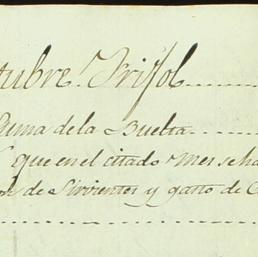 tubre. Trisol
Suma de la Buelta
que en el citado Mes se ha
de Sirvientes y gasto de C